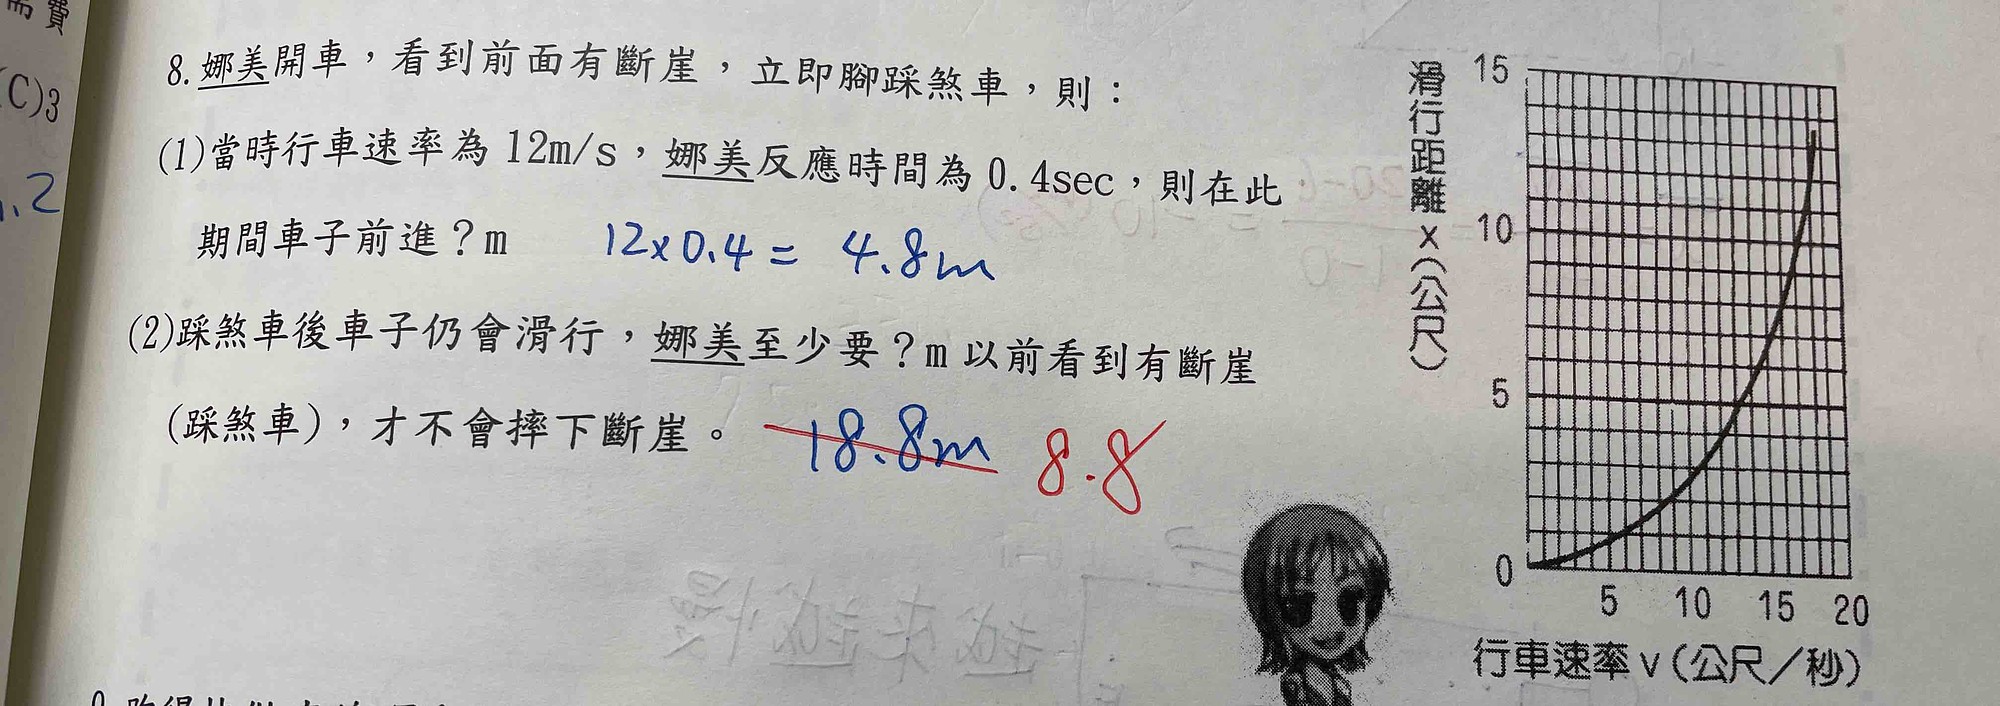 需費
(C)3
1.2
8.娜美開車，看到前面有斷崖，立即腳踩煞車，則：
(1)當時行車速率為 12m/s，娜美反應時間為 0.4sec，則在此
期間車子前進？m 12x0.4 = 4.8m
(2)踩煞車後車子仍會滑行，娜美至少要？m 以前看到有斷崖
(踩煞車)，才不會摔下斷崖。 18.8m 8.8
滑行距離x(公尺)
15
10
5
0
5 10 15 20
行車速率 v(公尺／秒)